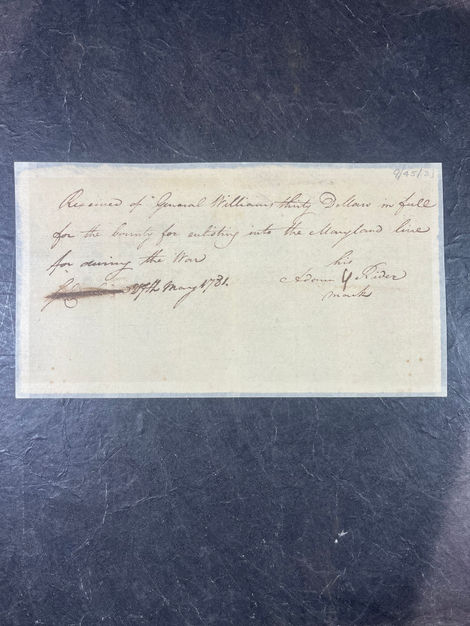 9/45/23
Received of General Williams thirty Dollars in full
for the bounty for enlisting into the Maryland line
for during the War
27th May 1781.
his
Adam Rider
mark